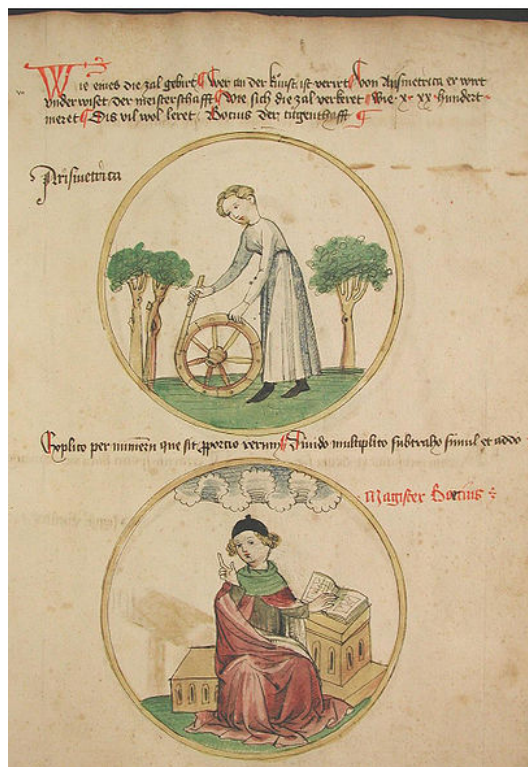 Wie eines die zal gebirt Wer an der kunst ist verirt Von Arismetrica er wirt
vnderwiset der meisterschafft Wie sich die zal verkeret Wie x xx hundert
meret Dis vil wol leret Boecius der tugenthafft
Arismetrica
Explico per numerum que sit proporcio rerum Diuido multiplico subtraho simul et addo
Magister Boecius